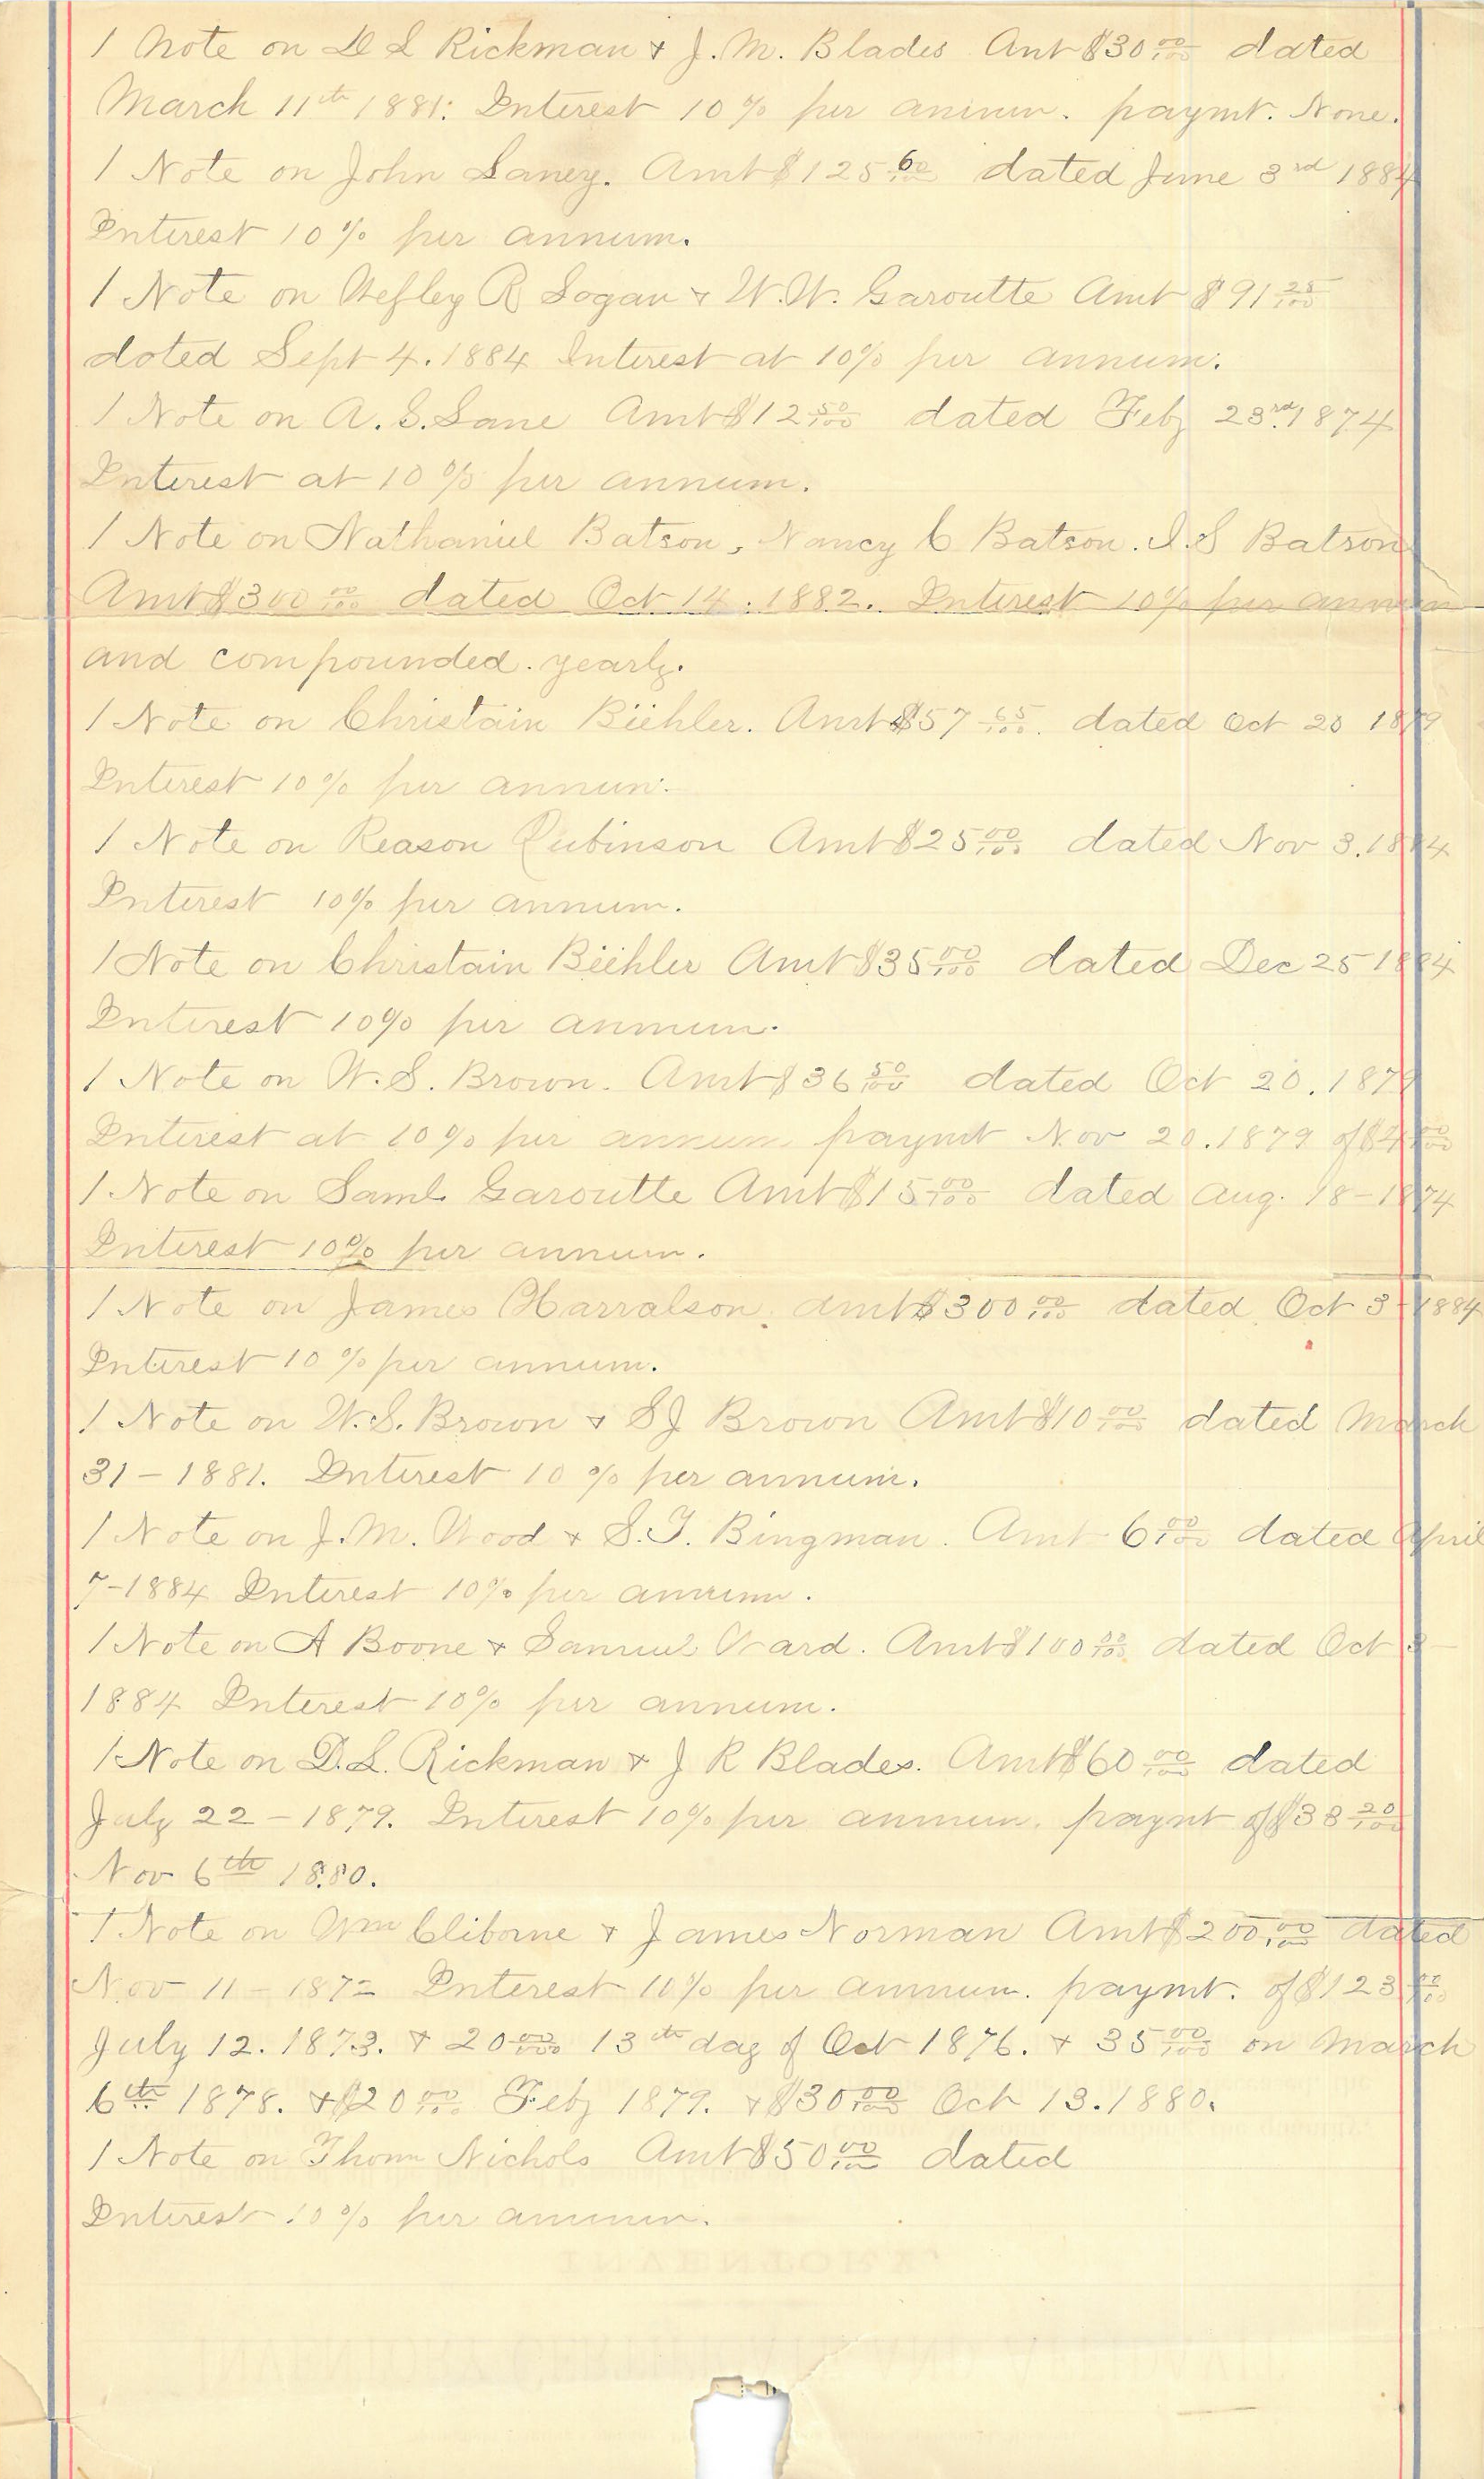 1 Note on D L Rickman & J. M. Blades Amt $30 00/100 dated
March 11th 1881: Interest 10 % per annum. paymt. None.
1 Note on John Laney. Amt $125 60/100 dated June 3rd 1884
Interest 10 % per annum.
1 Note on Wesley R Logan & W. W. Garoutte Amt $91 25/100
dated Sept 4. 1884 Interest at 10% per annum.
1 Note on A. S. Lane Amt $12 50/100 dated Feby 23rd 1874
Interest at 10 % per annum.
1 Note on Nathaniel Batson, Nancy C Batson. I. S Batson
Amt $300 00/100 dated Oct 14. 1882. Interest 10% per annum
and compounded. yearly.
1 Note on Christain Biehler. Amt $57 65/100. dated Oct 20 1879
Interest 10 % per annum.
1 Note on Reason Rubinson Amt $25 00/100 dated Nov 3. 1884
Interest 10% per annum.
1 Note on Christain Biehler Amt $35 00/100 dated Dec 25 1884
Interest 10% per annum.
1 Note on W. S. Brown. Amt $36 50/100 dated Oct 20. 1879
Interest at 10% per annum paymt Nov 20. 1879 of $4 00/100
1 Note on Saml Garoutte Amt $15 00/100 dated Aug. 18 - 1874
Interest 10% per annum.
1 Note on James Harralson. Amt $300 00/100 dated Oct 3 - 1884
Interest 10 % per annum.
1 Note on W. S. Brown & S J Brown Amt $10 00/100 dated March
31 - 1881. Interest 10 % per annum.
1 Note on J. M. Wood & S. T. Bingman. Amt 6 00/100 dated April
7 - 1884 Interest 10% per annum.
1 Note on A Boone & Samuel Ward. Amt $100 00/100 dated Oct 3 -
1884 Interest 10% per annum.
1 Note on D. L. Rickman & J R Blades. Amt $60 00/100 dated
July 22 - 1879. Interest 10% per annum. paymt of $38 20/100
Nov 6th 1880.
1 Note on Wm Cliborne & James Norman Amt $200 00/100 dated
Nov 11 - 1872 Interest 10% per annum. paymt. of $123 00/100
July 12. 1873. & 20 00/100 13th day of Oct 1876. & 35 00/100 on March
6th 1878. & $20 00/100 Feby 1879. & $30 00/100 Oct 13. 1880.
1 Note on Thom Nichols Amt $50 00/100 dated
Interest 10 % per annum.